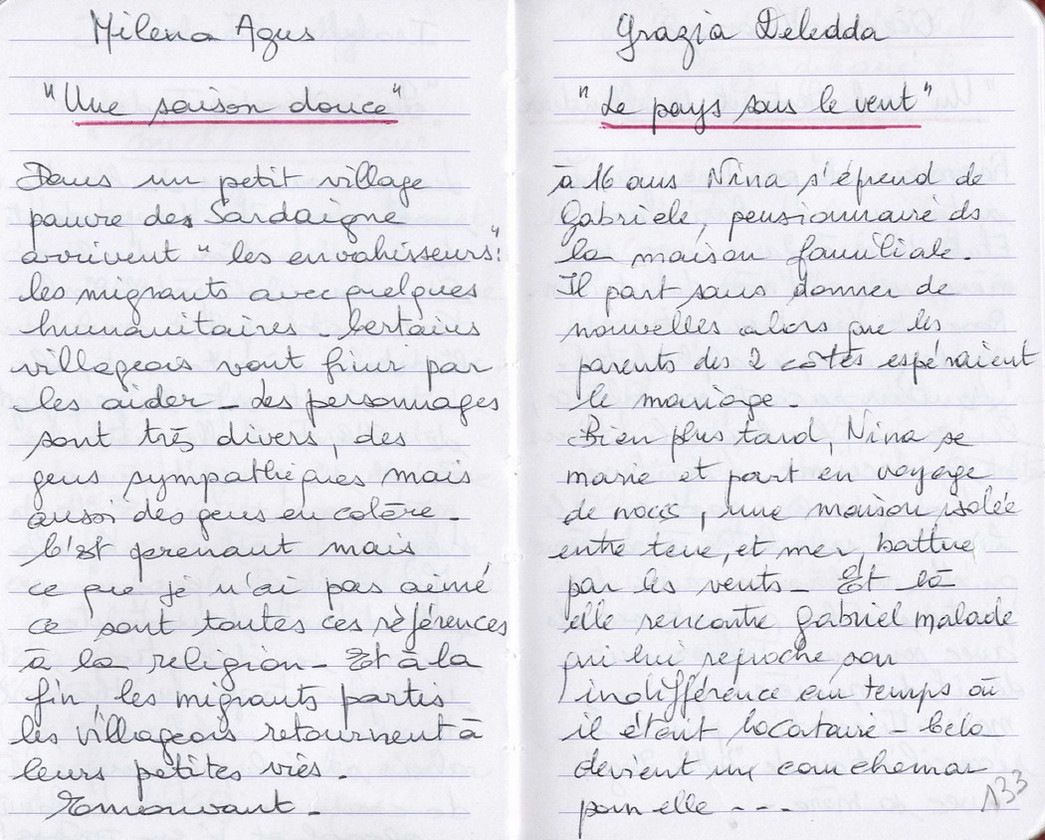 Milena Agus
"Une saison douce"
Dans un petit village
pauvre des Sardaigne
arrivent "les envahisseurs":
les migrants avec quelques
humanitaires. Certains
villageois vont finir par
les aider - des personnages
sont très divers, des
gens sympathiques mais
aussi des gens en colère.
C'est prenant mais
ce que je n'ai pas aimé
ce sont toutes ces références
à la religion - Et à la
fin, les migrants partis
les villageois retournent à
leurs petites viès.
Emouvant.
Grazia Deledda
"Le pays sous le vent"
à 16 ans Nina s'éprend de
Gabriele, pensionnaire ds
la maison familiale.
Il part sans donner de
nouvelles alors que les
parents des 2 côtés espéraient
le mariage.
Bien plus tard, Nina se
marie et part en voyage
de noces, une maison isolée
entre terre, et mer, battue
par les vents - Et là
elle rencontre Gabriel malade
qui lui reproche son
indifférence au temps où
il était locataire - Cela
devient un cauchemar
pour elle ---
133